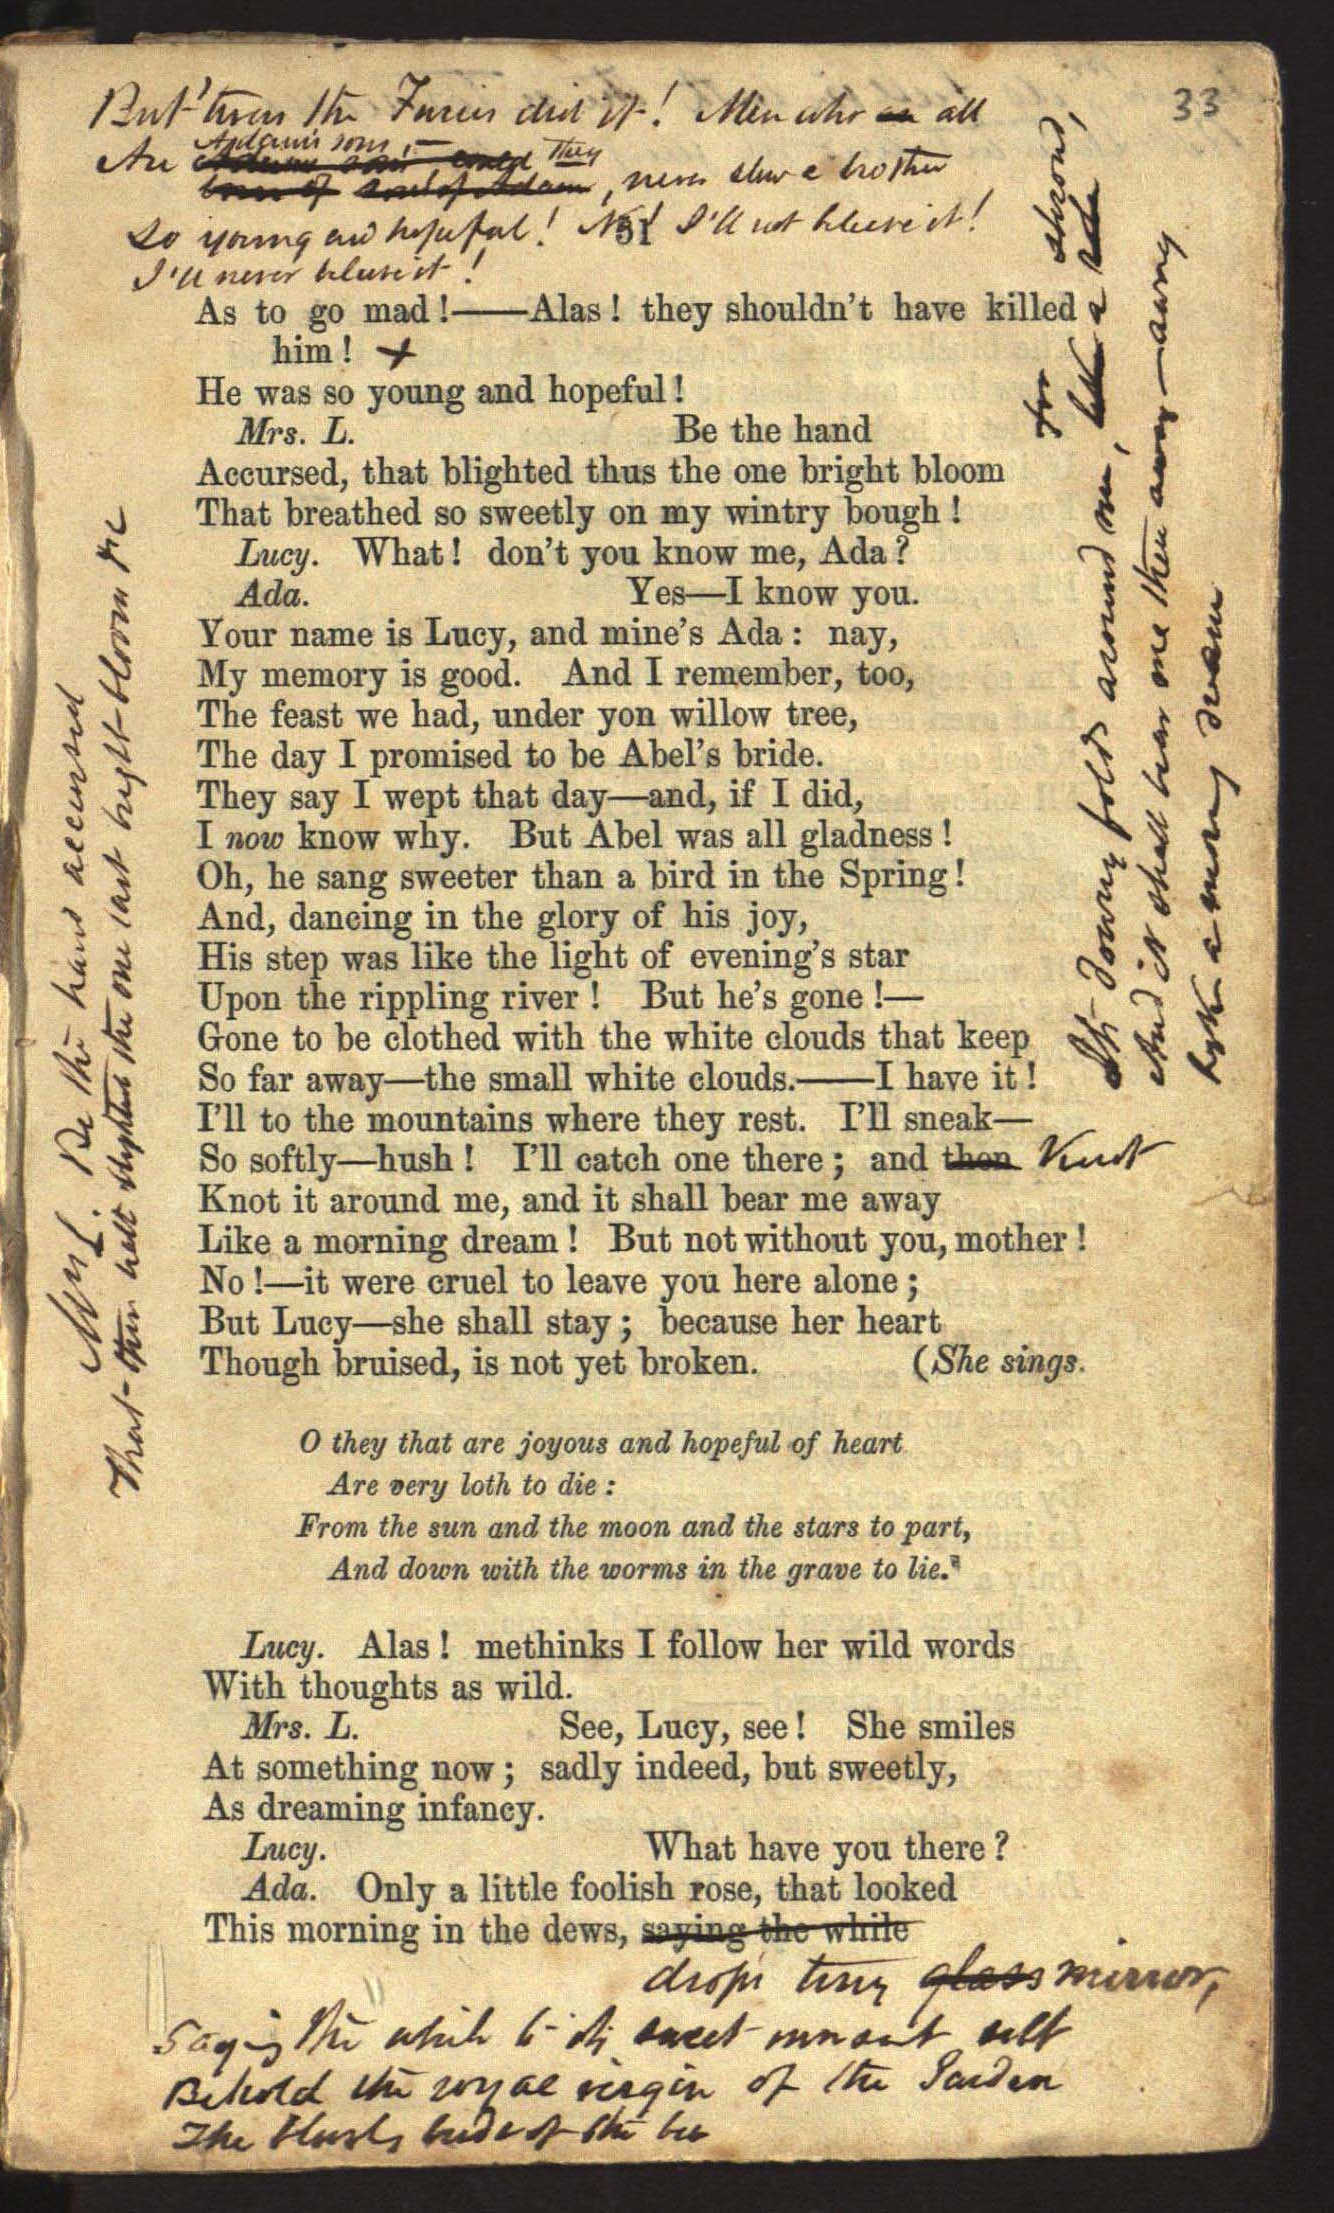 33
But 'twas the Furies did it! Men who all
Are Adam's sons, — they
never slew a brother
So young and hopeful! No! I'll not believe it!
31
I'll never believe it!
As to go mad!——Alas! they shouldn't have killed
him! +
He was so young and hopeful!
Mrs. L. Be the hand
Accursed, that blighted thus the one bright bloom
That breathed so sweetly on my wintry bough!
Lucy. What! don't you know me, Ada?
Ada. Yes—I know you.
Your name is Lucy, and mine's Ada: nay,
My memory is good. And I remember, too,
The feast we had, under yon willow tree,
The day I promised to be Abel's bride.
They say I wept that day—and, if I did,
I now know why. But Abel was all gladness!
Oh, he sang sweeter than a bird in the Spring!
And, dancing in the glory of his joy,
His step was like the light of evening's star
Upon the rippling river! But he's gone!—
Gone to be clothed with the white clouds that keep
So far away—the small white clouds.——I have it!
I'll to the mountains where they rest. I'll sneak—
So softly—hush! I'll catch one there; and then Knot
Knot it around me, and it shall bear me away
Like a morning dream! But not without you, mother!
No!—it were cruel to leave you here alone;
But Lucy—she shall stay; because her heart
Though bruised, is not yet broken. (She sings.
O they that are joyous and hopeful of heart
Are very loth to die:
From the sun and the moon and the stars to part,
And down with the worms in the grave to lie.
Lucy. Alas! methinks I follow her wild words
With thoughts as wild.
Mrs. L. See, Lucy, see! She smiles
At something now; sadly indeed, but sweetly,
As dreaming infancy.
Lucy. What have you there?
Ada. Only a little foolish rose, that looked
This morning in the dews, saying the while
drop's tiny glass mirror,
Saying the while to its sweet innocent self
Behold the royal virgin of the Garden
The blushing bride of the bee
Mrs L. Be the hand accursed
That thus hath blighted the one last bright bloom &c
for shroud,
Its downy folds around me, like a
And it shall bear me then away — away
Like a morning dream